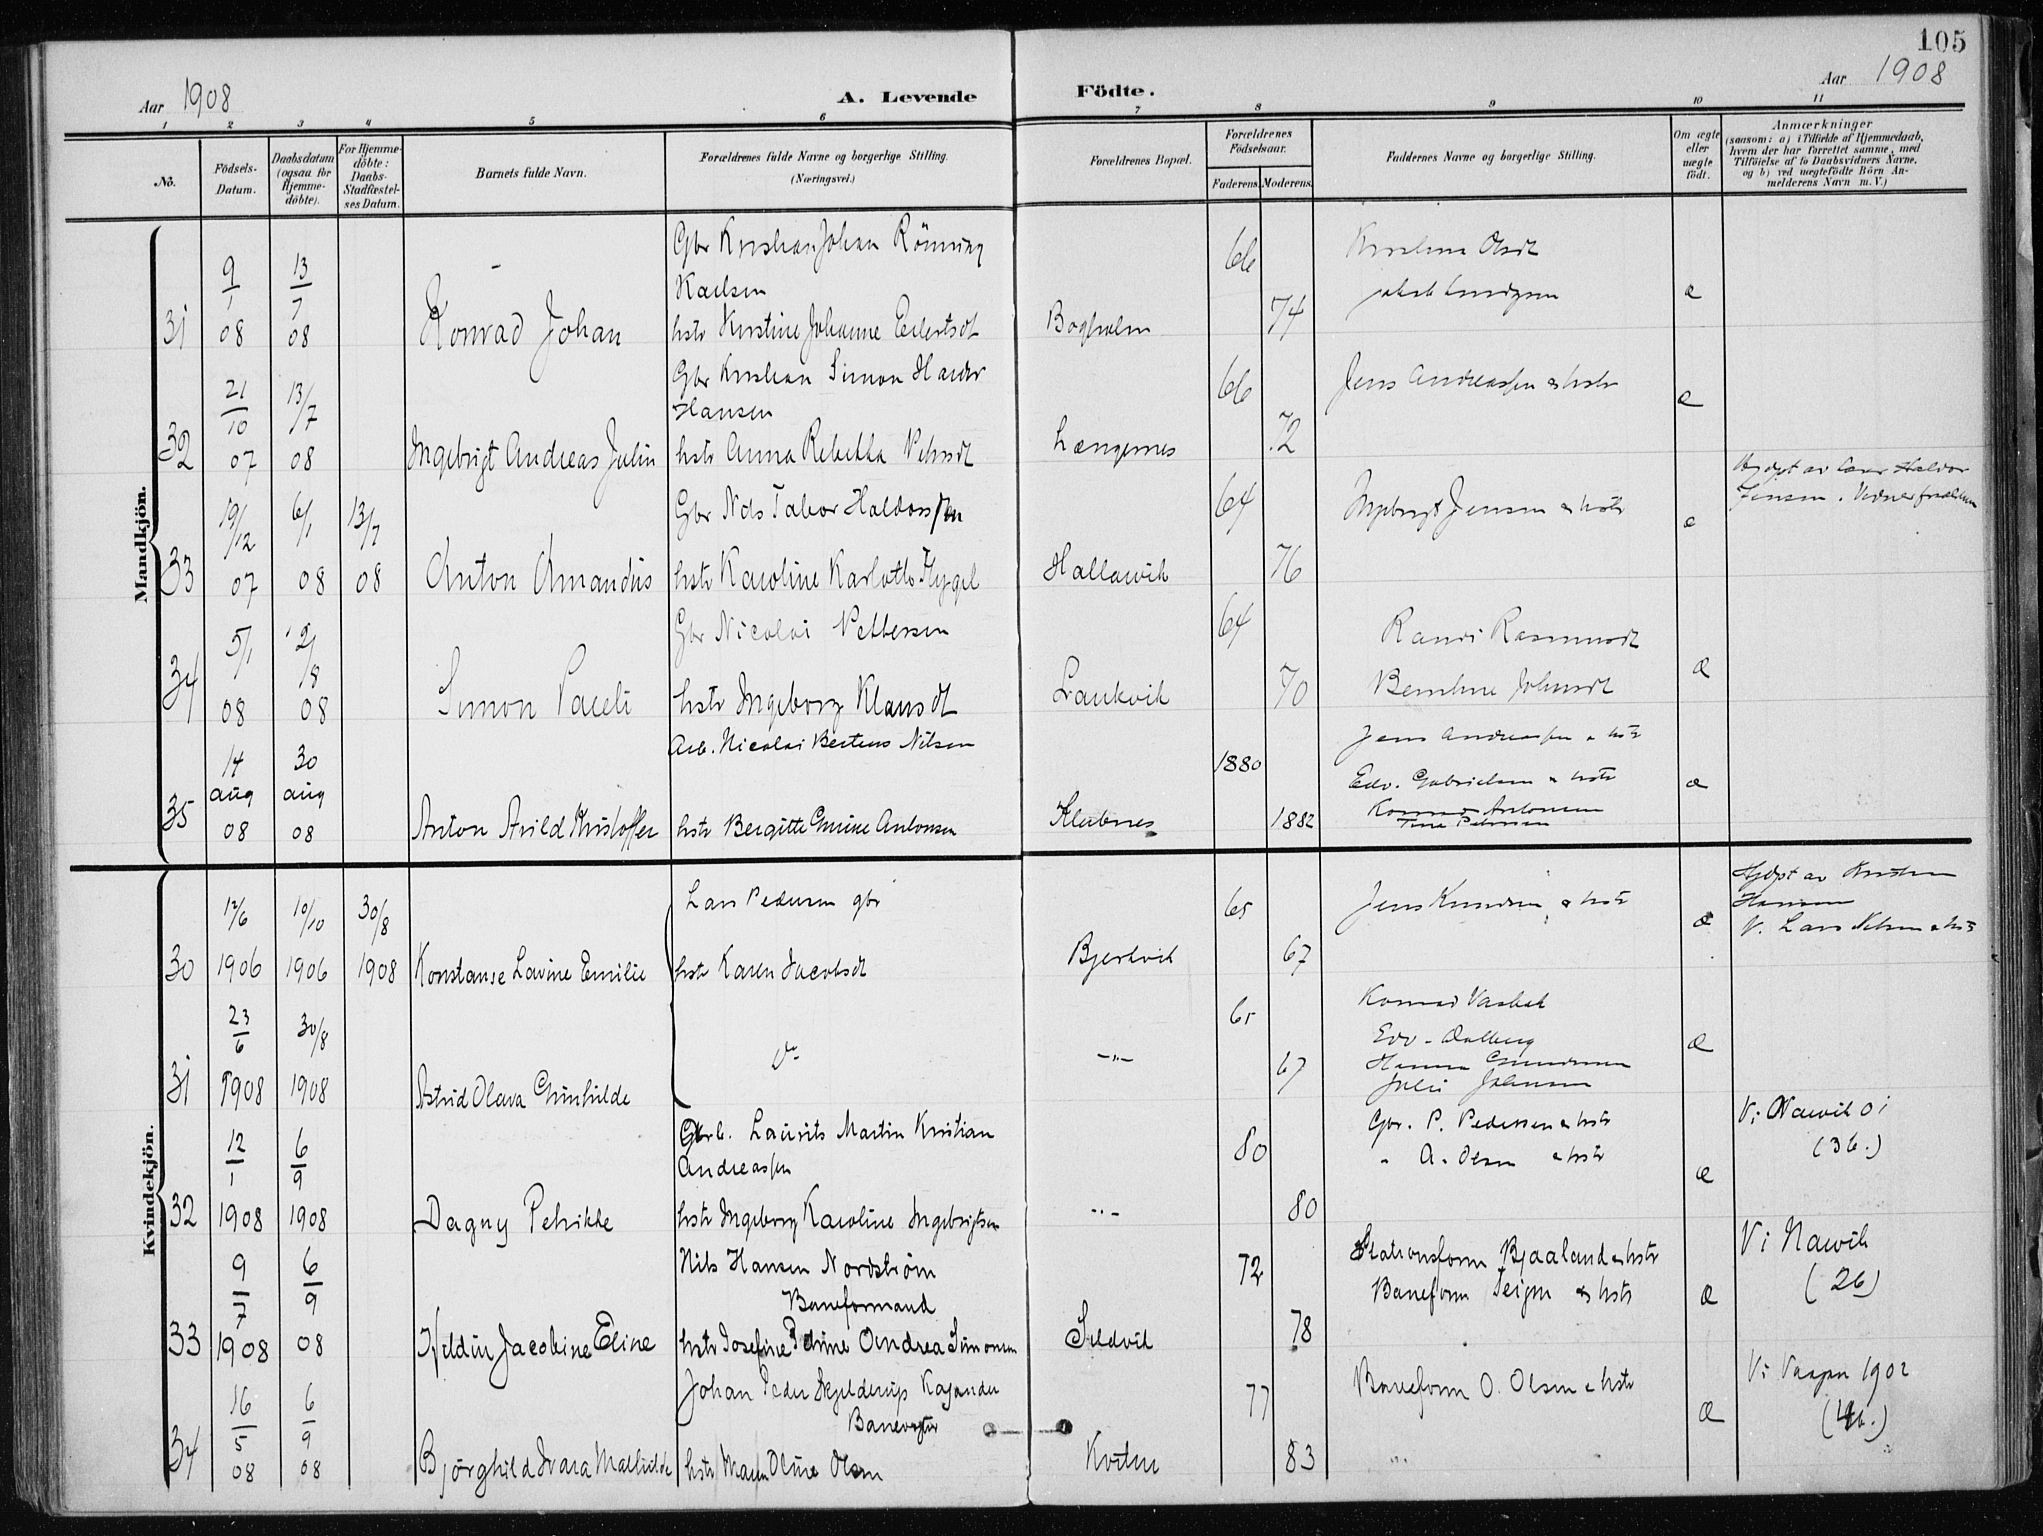 105
Aar 1908
A. Levende Födte.
Aar 1908
1 2 3 4 5 6 7 8 9 10 11
No.
Födsels-Datum.
Daabsdatum (ogsaa for Hjemme-döbte).
For Hjemme-döbte: Daabs-Stadfæstel-ses Datum.
Barnets fulde Navn.
Forældrenes fulde Navne og borgerlige Stilling.
(Næringsvei.)
Forældrenes Bopæl.
Forældrenes Födselsaar.
Faderens. Moderens.
Faddernes Navne og borgerlige Stilling.
Om ægte eller uægte födt.
Anmærkninger
(saasom: a) i Tilfælde af Hjemmedaab,
hvem der har forrettet samme, med
Tilföielse af to Daabsvidners Navne,
og b) ved uægtefödte Börn An-
melderens Navn m. V.)
Mandkjön.
Gbr Kristian Johan Rönning
Karlsen
31 9/1 08 13/7 08 Konrad Johan hstr Kirstine Johanne Eilertsdt Bogholm 66 74 æ
Gbr Kristian Simon Hauder
Hansen
32 21/10 07 13/7 08 Ingebrigt Andreas Julin hstr Anna Rebekka Pehrsdt Længernes 66 72 Jens Andreassen & hstr æ
Gbr Nils Tabor Haldorssen
33 19/12 07 6/1 08 13/7 08 Anton Amandus hstr Karoline Karlotte Hygel Hallavik 64 76 Ingebrigt Jensen & hstr æ
Gbr Nicolai Pettersen
34 5/1 08 2/8 08 Simon Paceli hstr Ingeborg Klausdt Laukvik 64 70 Randi Rasmusdt
æ
Arb. Nicolai Berteus Nilsen
35 14 aug 08 30 aug 08 Anton Arild Kristoffer hstr Bergitte Gurine Antonsen Klubnes 1880 1882 Jens Andreassen & hstr
Edv. Gabrielsen & hstr
Konrad Antonsen
æ
Kvindekjön.
Lars Pedersen gbr
30 12/6 1906 10/10 1906 30/8 1908 Konstanse Lavine Emilie hstr Karen Jacobsdt Bjerkvik 65 67 Jens Knudsen & hstr æ
Hjdpt av Kristen
Hansen
V. Lars Nilsen & hstr
31 23/6 1908 30/8 1908 Astrid Olava Gunhilde Do -"- 65 67
Edv. Dalberg
Hanna Gundersen
Julie Johansen
æ
Gbrb. Laurits Martin Kristian
Andreassen
32 12/1 1908 6/9 1908 Dagny Petrikke hstr Ingeborg Karoline Ingebrigtsen -"- 80 80 Gbr. P. Pedersen & hstr
" A. Olsen & hstr
æ
V i Narvik 01
(36.)
Nils Hansen Nordström
Baneformand
33 9/7 1908 6/9 08 Hildur Jacobine Eline hstr Josefine Petrine Andrea Simonsen Sildvik 72 78 Stationsform Bjaaland & hstr
Baneform Teigen & hstr
æ
V i Narvik
(26)
Johan Peder Skjelderup Kajander
Banevogter
34 16/5 08 6/9 08 Bjørghild Ivara Mathilde hstr Maren Oline Olsen Kvitur 77 83 Baneform O. Olsen & hstr æ
V i Vaagan 1902